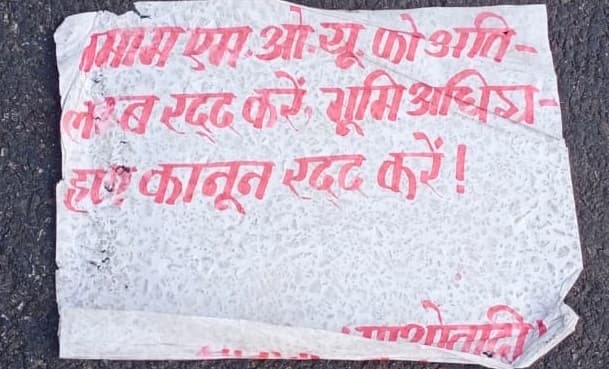 तमाम एम.ओ.यू. को अति-
लम्ब रद्द करें, भूमि अधिग्र-
हण कानून रद्द करें!
माओवादी